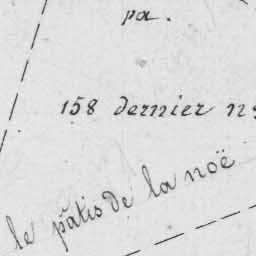 pa.
158 dernier n
le pâtis de la noë